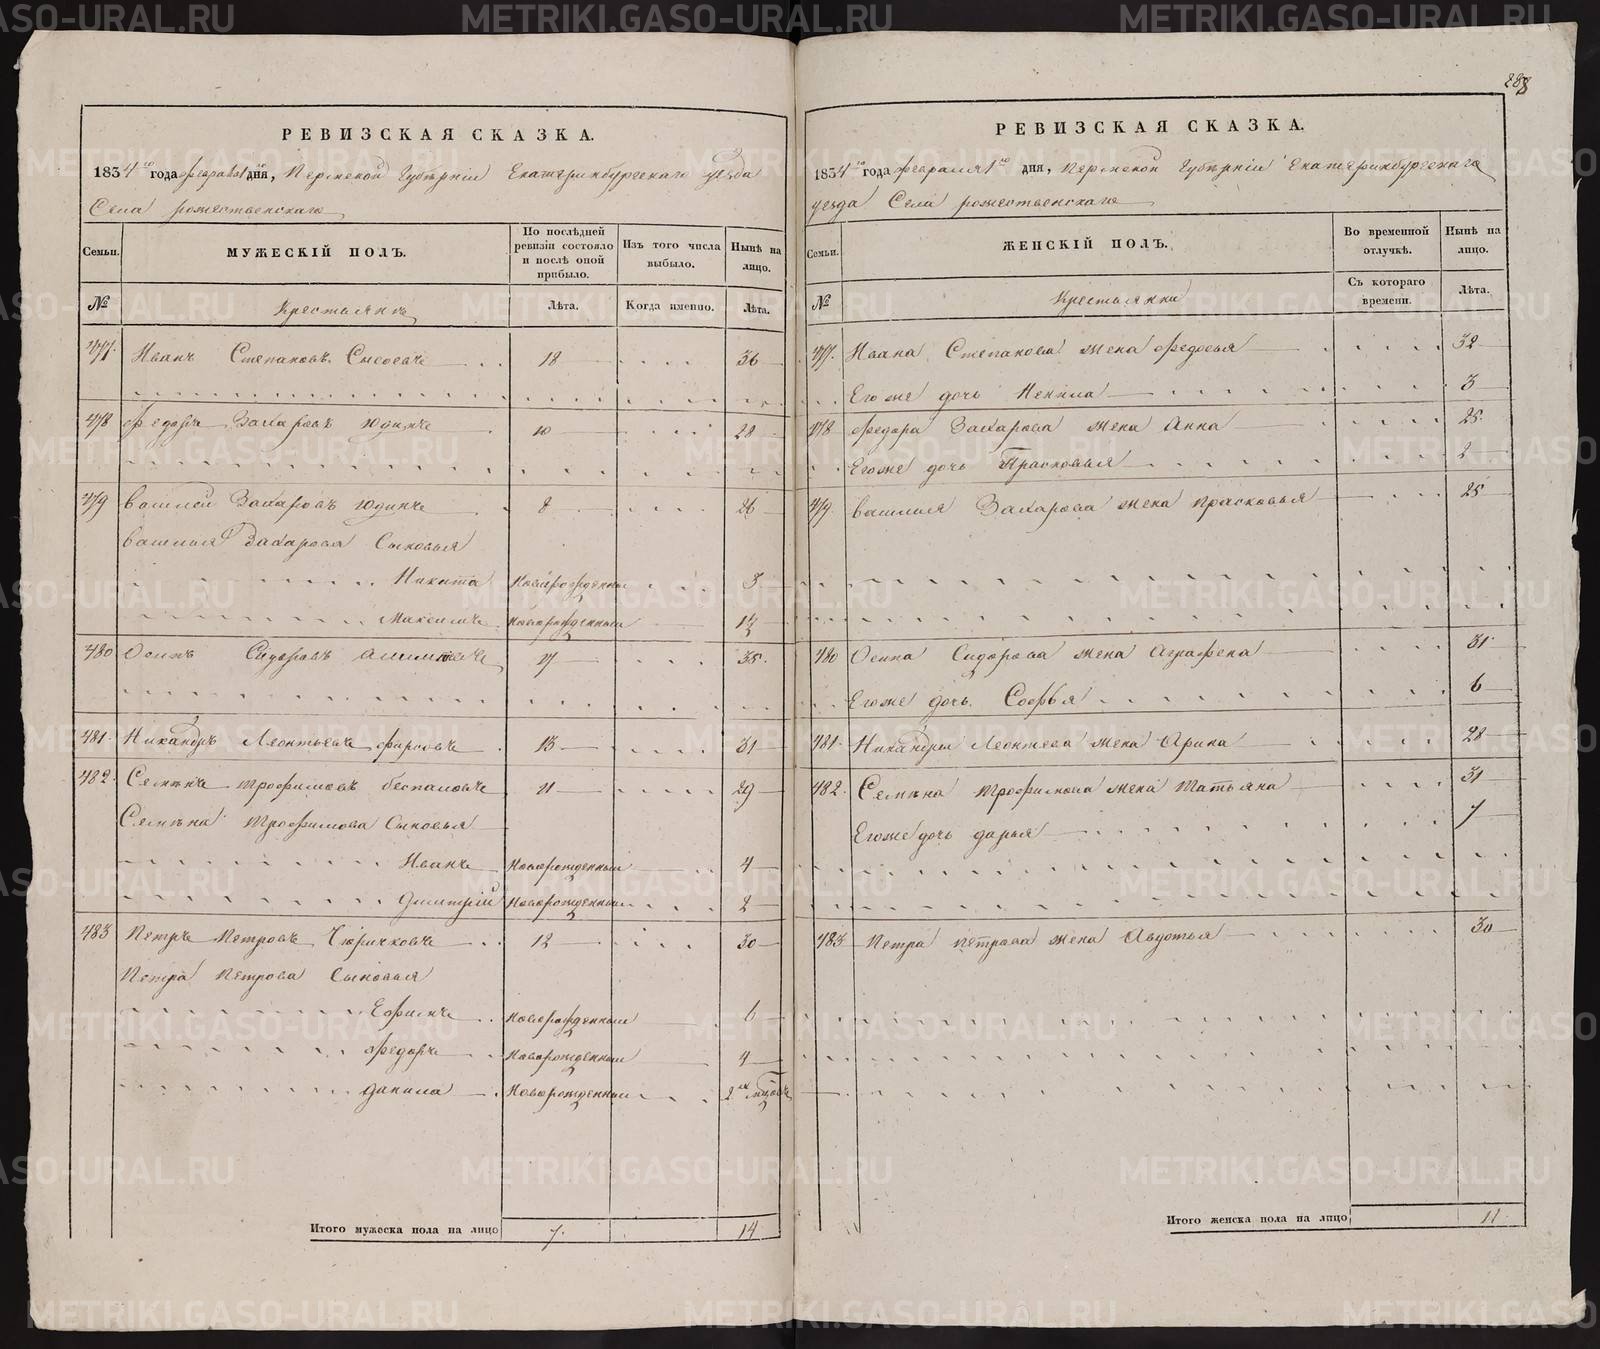 288
РЕВИЗСКАЯ СКАЗКА.
1834го года февраля 1го дня, Пермской Губѣрніи Екатеринбургскаго уезда
Села рожественскаго
Семьи. МУЖЕСКІЙ ПОЛЪ. По послѣдней ревизіи состояло и послѣ оной прибыло. Изъ того числа выбыло. Нынѣ на лицо.
№ Крестьянъ Лѣта. Когда именно. Лѣта.
477. Иванъ Степановъ Сысоевъ 18 36
478 Федоръ Захаровъ Юдинъ 10 28
479 Василей Захаровъ Юдинъ 8 26
Василья Захарова Сыновья
Никита Новорожденный 3
Максимъ Новорожденный
480 Осипъ Сидоровъ 17 35.
481. Никандръ Леонтьевъ Фирсовъ 13 31
482. Семенъ Трофимовъ беспаловъ 11 29
Семена Трофимова Сыновья
Иванъ Новорожденный 4
Дмитрій Новорожденный 2
483 Петръ Петровъ 12 30
Петра Петрова Сыновья
Ефимъ Новорожденный 6
Федоръ Новорожденный 4
Данила Новорожденный 2хъ мцовъ
Итого мужеска пола на лицо 7. 14
РЕВИЗСКАЯ СКАЗКА.
1834го года февраля 1го дня, Пермской Губѣрніи Екатеринбургскаго
уезда Села рожественскаго
Семьи. ЖЕНСКІЙ ПОЛЪ. Во временной отлучкѣ. Нынѣ на лицо.
№ Крестьянки Съ котораго времени. Лѣта.
477. Ивана Степанова жена Федосья 32
Егоже дочь Ненила 3
478 Федора Захарова жена Анна 25
Егоже дочь Прасковья 2
479. Василья Захарова жена Прасковья 25
480 Осипа Сидорова жена Аграфена 31
Егоже дочь Софья 6
481. Никандры Леонтева жена Арина 28
482. Семена Трофимова жена Татьяна 31
Егоже дочь дарья 7
483 Петра петрова жена Авдотья 30
Итого женска пола на лицо 11.
METRIKI.GASO-URAL.RU